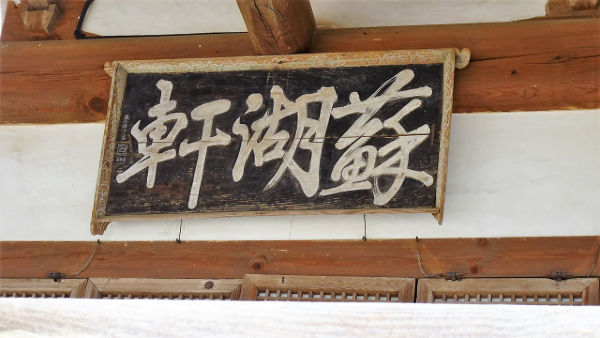 蘇湖軒